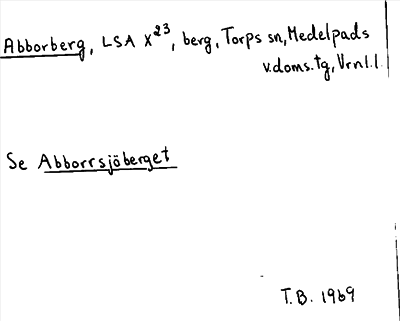 Abborberg, LSA X23, berg, Torps sn, Medelpads
v.doms.tg, Vrnl.l.
Se Abborrsjöberget
T.B. 1969